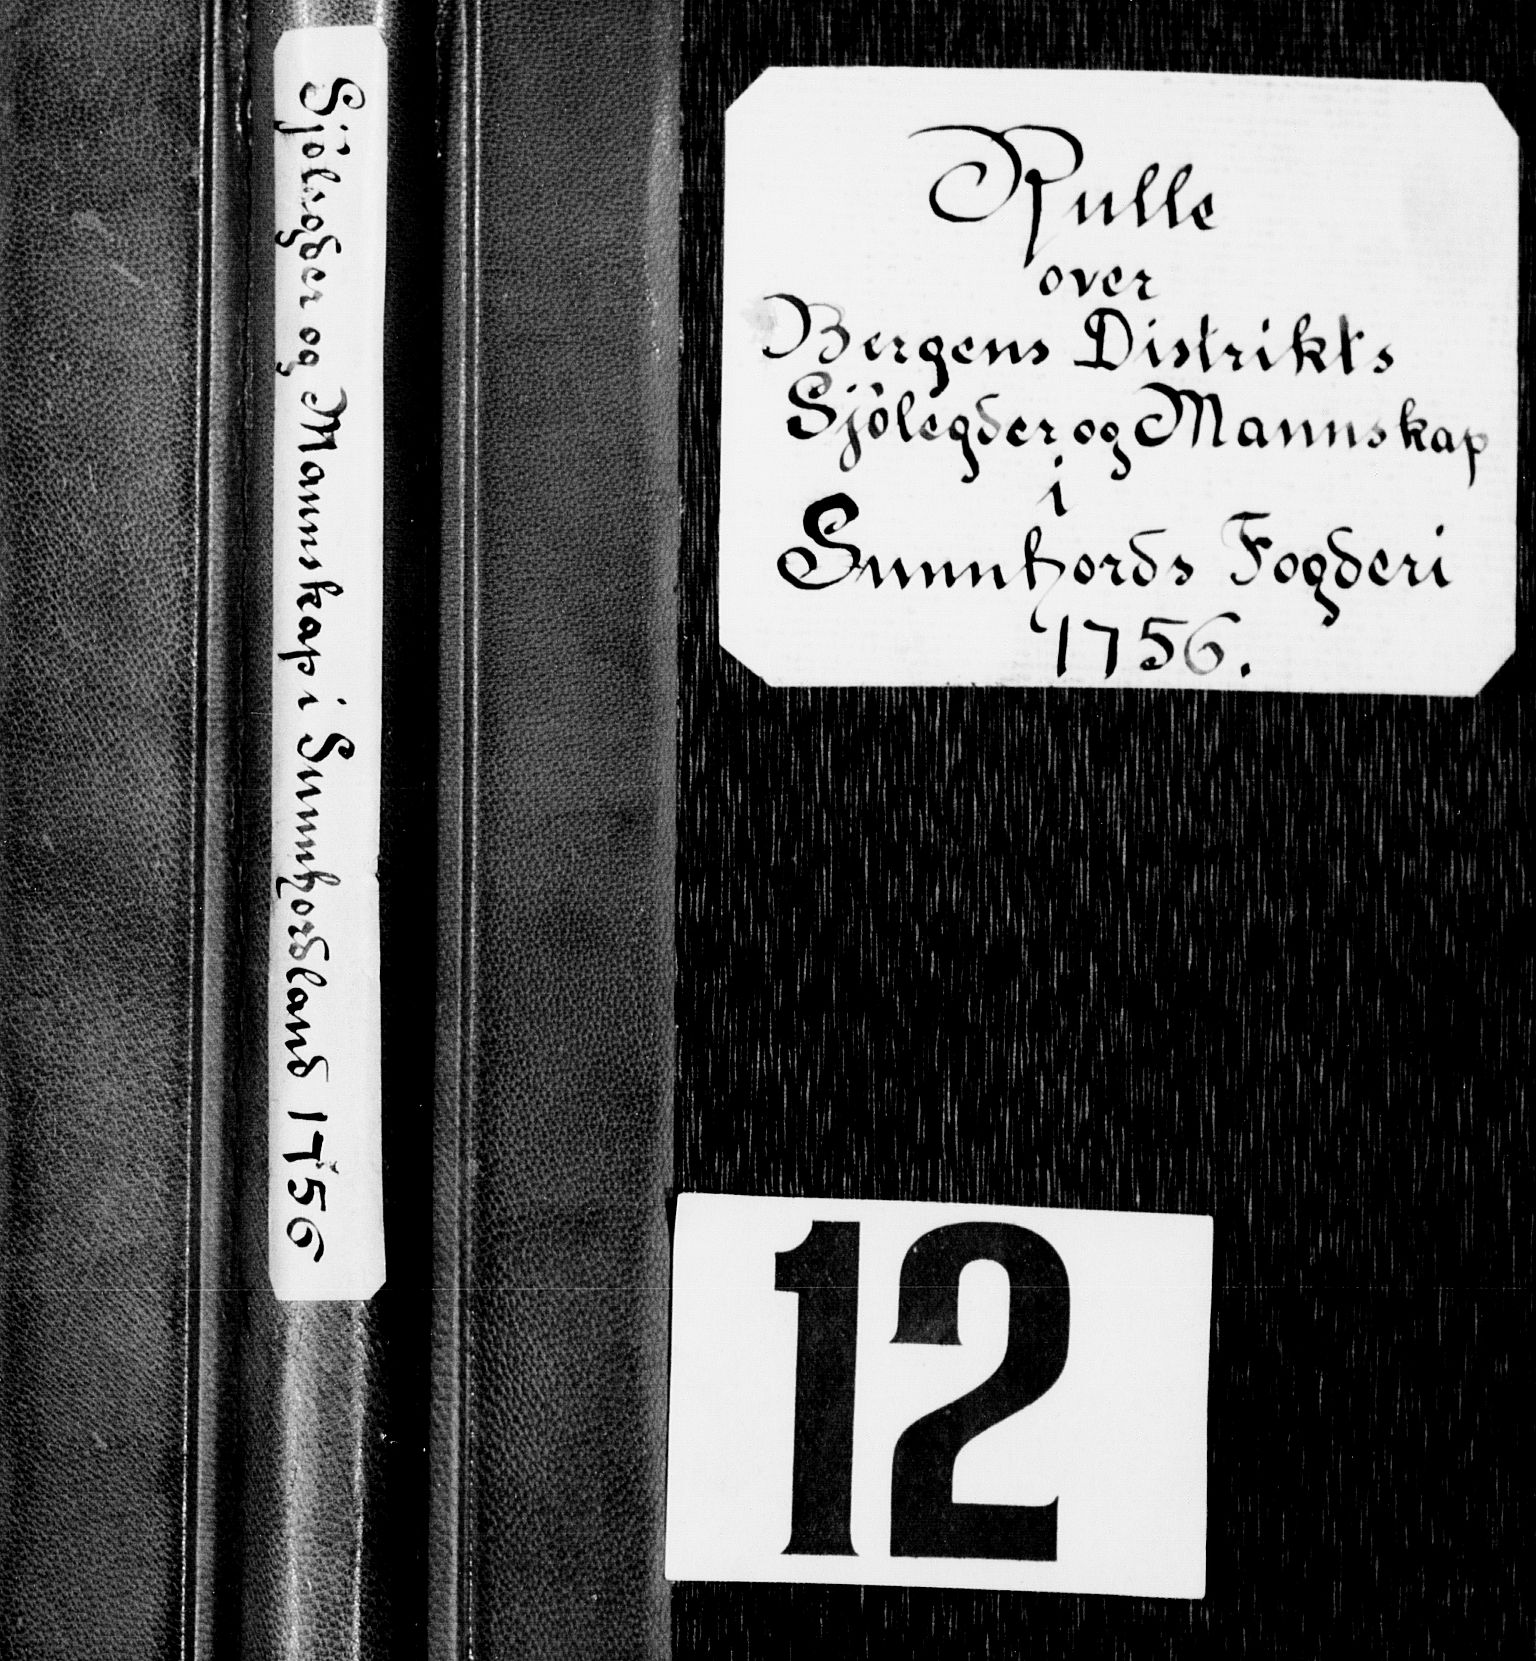 Sjölegder og Mannskap i Sunnhordland 1756
Rulle
over
Bergens Distrikts
Sjölegder og Mannskap
i
Sunnhords Fogderi
1756.
12